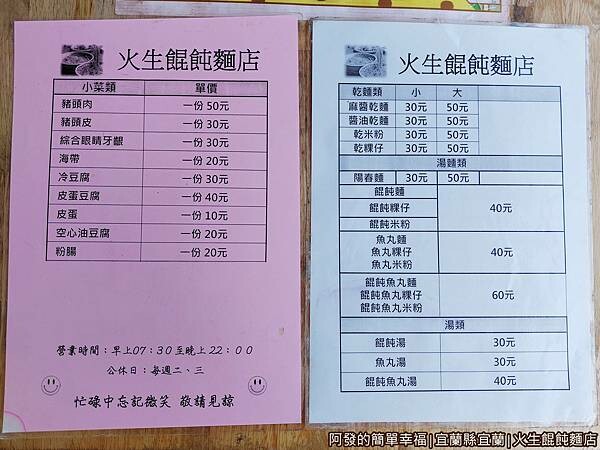 火生餛飩麵店
小菜類 單價
豬頭肉 一份 50元
豬頭皮 一份 30元
綜合眼睛牙齦 一份 30元
海帶 一份 20元
冷豆腐 一份 30元
皮蛋豆腐 一份 40元
皮蛋 一份 10元
空心油豆腐 一份 20元
粉腸 一份 20元
營業時間：早上07：30至晚上22：00
公休日：每週二、三
忙碌中忘記微笑 敬請見諒
火生餛飩麵店
乾麵類 小 大
麻醬乾麵 30元 50元
醬油乾麵 30元 50元
乾米粉 30元 50元
乾粿仔 30元 50元
湯麵類
陽春麵 30元 50元
餛飩麵
餛飩粿仔 40元
餛飩米粉
魚丸麵
魚丸粿仔 40元
魚丸米粉
餛飩魚丸麵
餛飩魚丸粿仔 60元
餛飩魚丸米粉
湯類
餛飩湯 30元
魚丸湯 30元
餛飩魚丸湯 40元
阿發的簡單幸福|宜蘭縣宜蘭|火生餛飩麵店